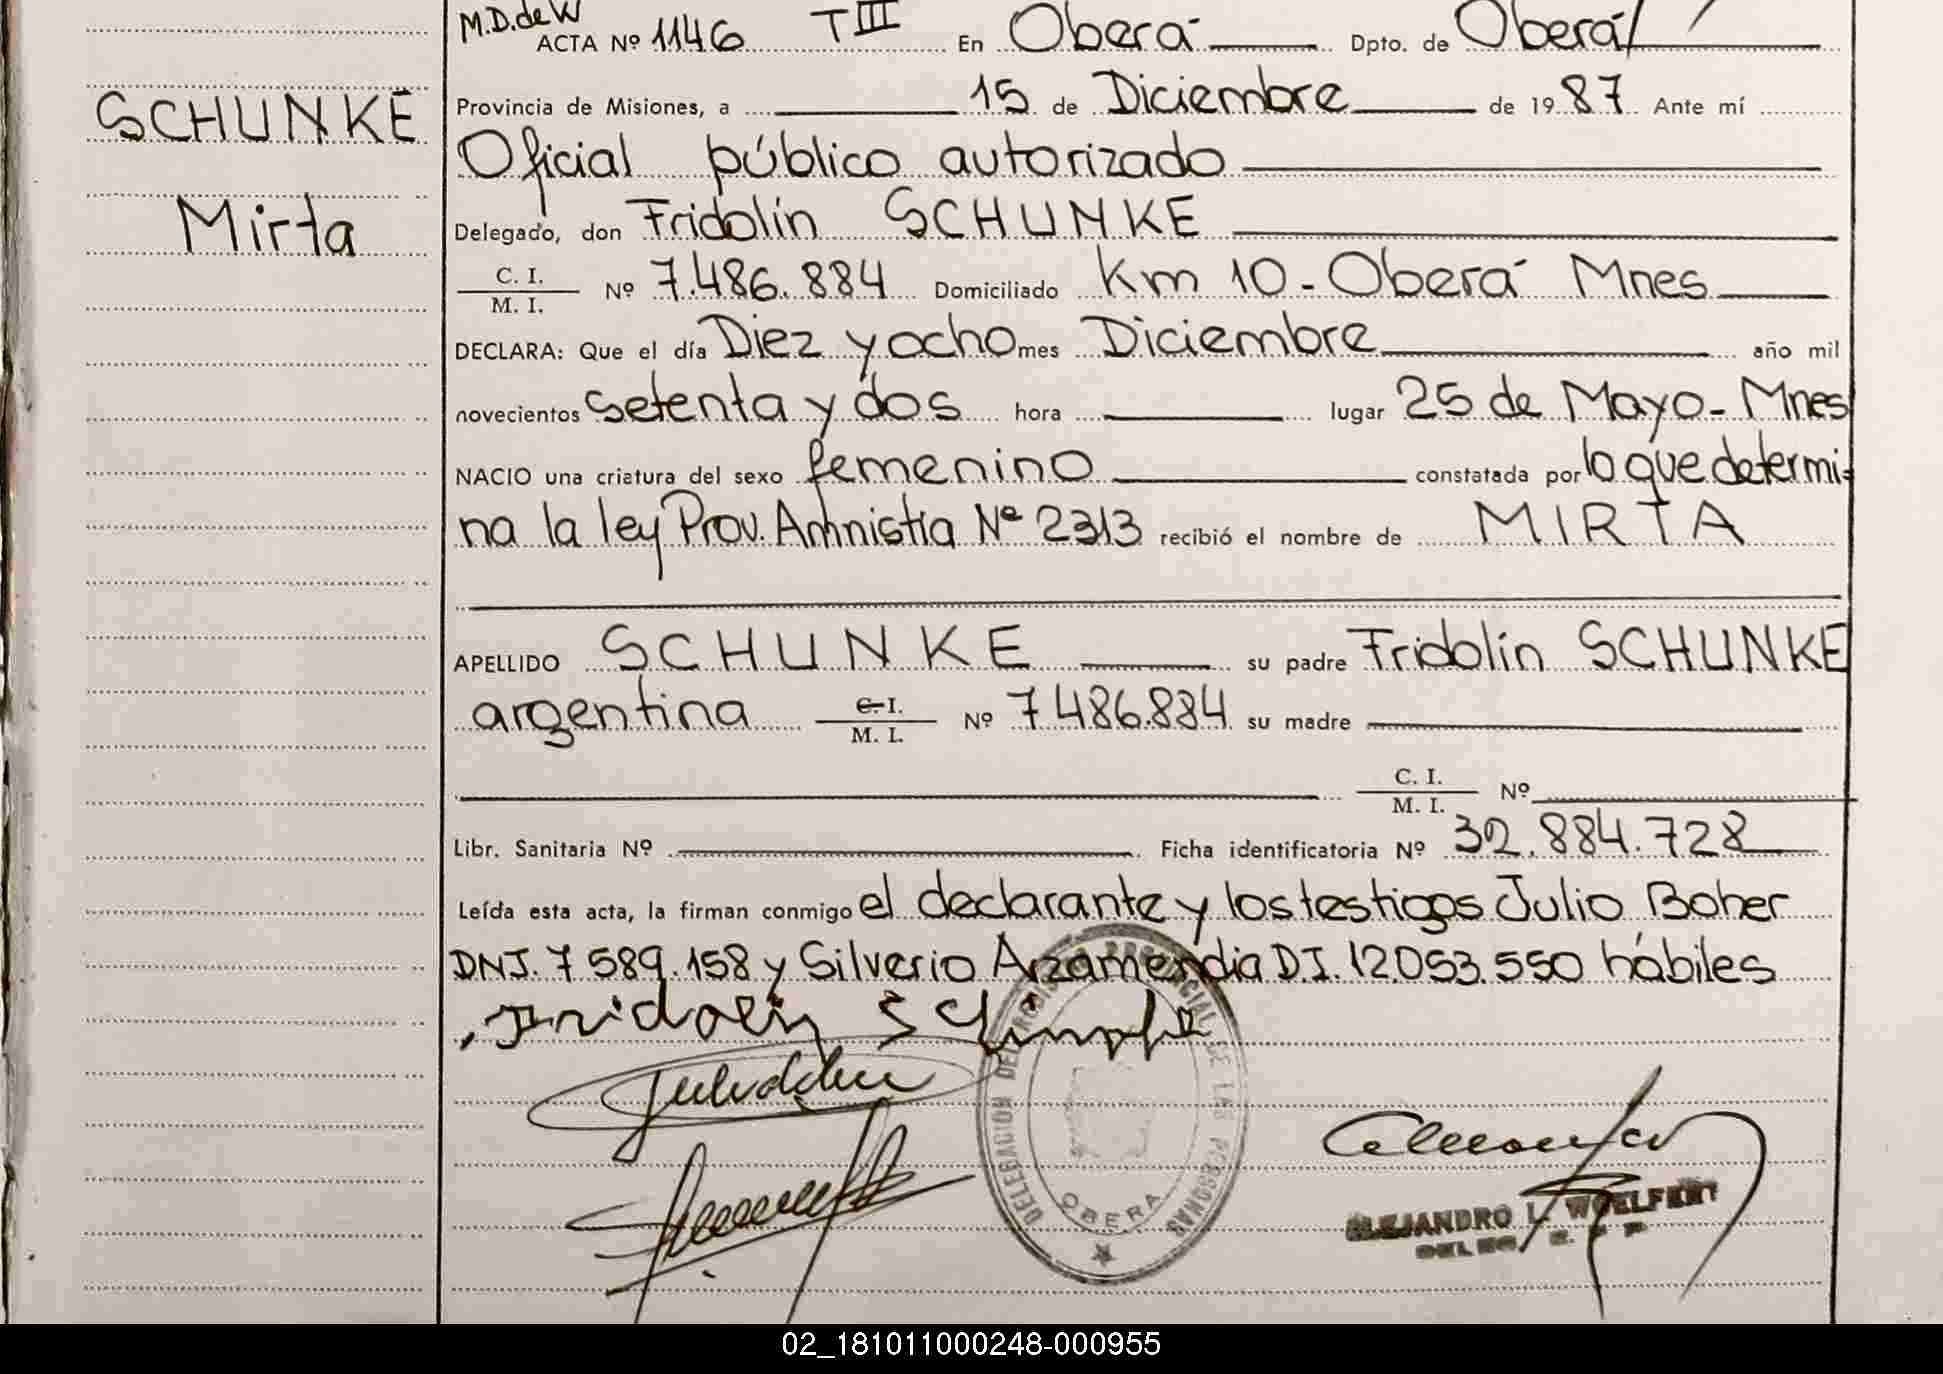 M.D.de W
ACTA Nº 1146 T III En Oberá Dpto. de Oberá
SCHUNKE
Provincia de Misiones, a 15 de Diciembre de 1987 Ante mí
Oficial público autorizado
Mirta
Delegado, don Fridolín SCHUNKE
C. I. / M. I. Nº 7.486.884 Domiciliado Km 10 - Oberá Mnes
DECLARA: Que el día Diez y ocho mes Diciembre año mil
novecientos setenta y dos hora lugar 25 de Mayo - Mnes
NACIO una criatura del sexo femenino constatada por lo que determi-
na la ley Prov. Amnistía Nº 2313 recibió el nombre de MIRTA
APELLIDO SCHUNKE su padre Fridolín SCHUNKE
argentina C. I. / M. I. Nº 7.486.884 su madre
C. I. / M. I. Nº
Libr. Sanitaria Nº Ficha identificatoria Nº 32.884.728
Leída esta acta, la firman conmigo el declarante y los testigos Julio Boher
DNI. 7 589.158 y Silverio Arzamendia D.I. 12.053.550 hábiles
DELEGACION DEL REGISTRO PROVINCIAL DE LAS PERSONAS
OBERA
ALEJANDRO L. WOELFERT
02_181011000248-000955